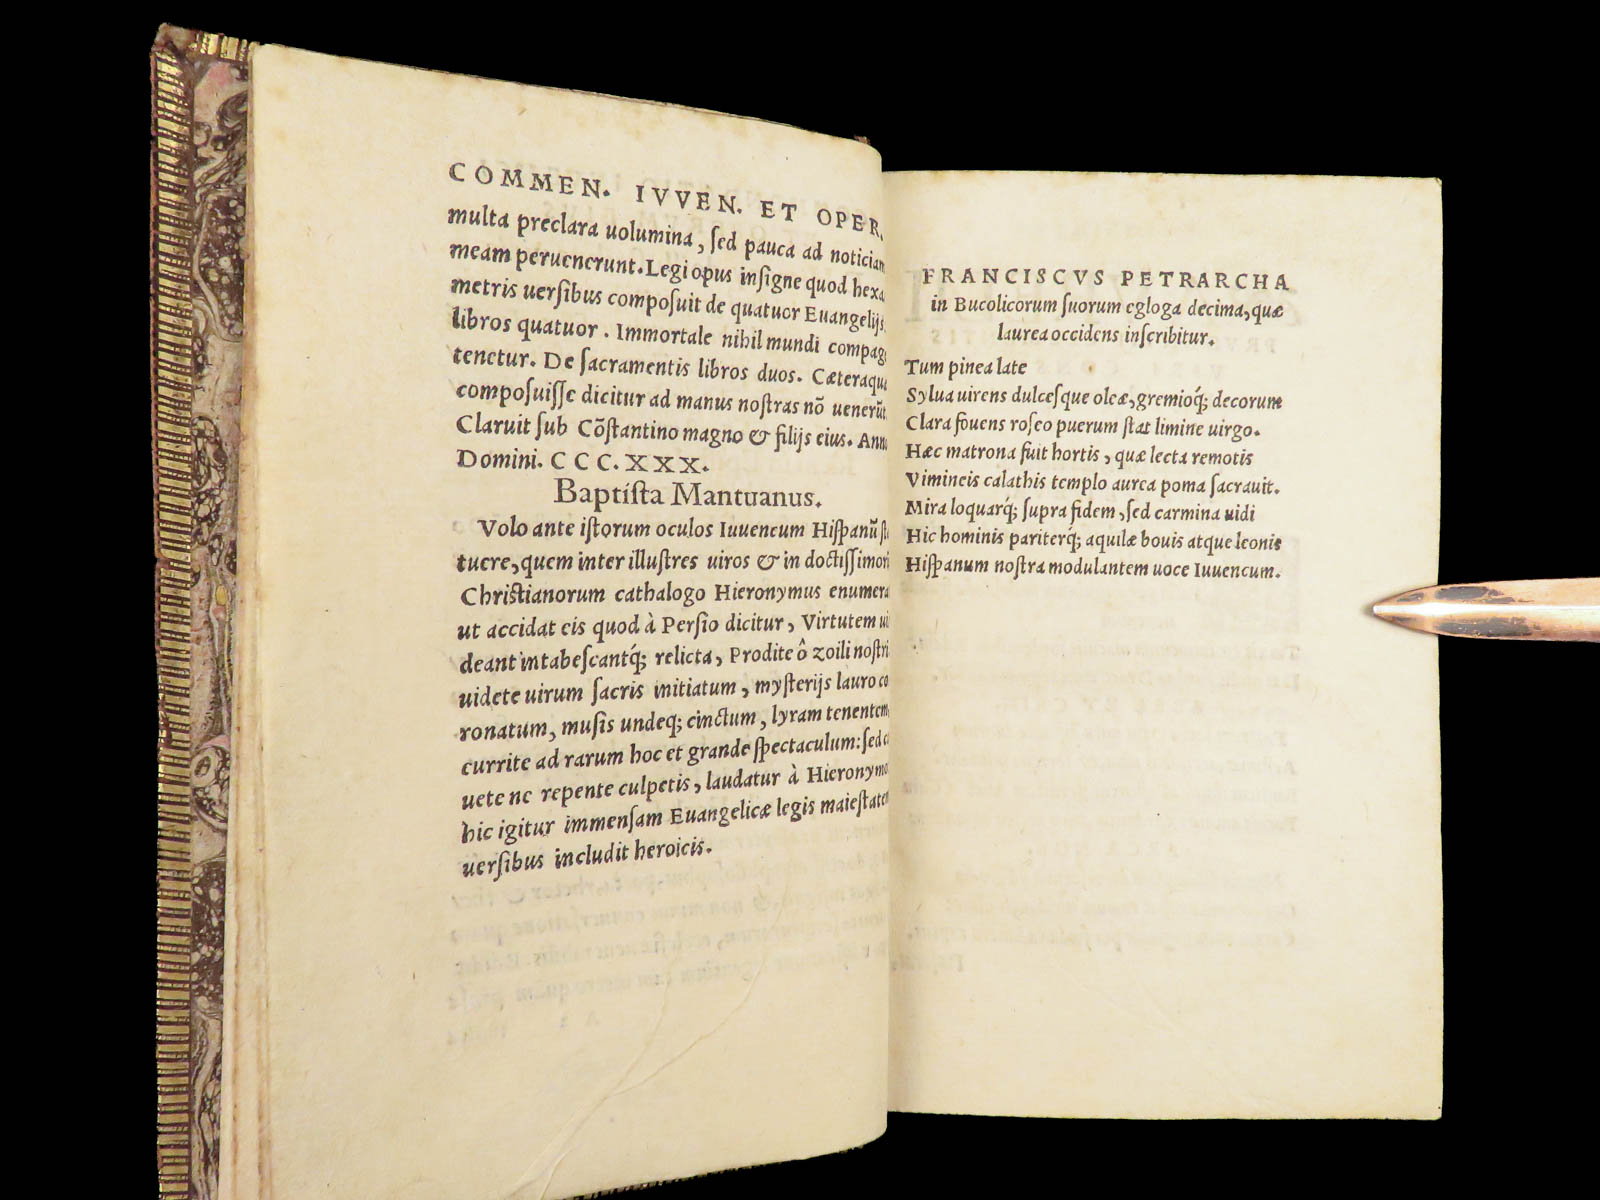 COMMEN. IVVEN. ET OPER.
multa preclara uolumina, sed pauca ad noticiam
meam peruenerunt. Legi opus insigne quod hexa
metris uersibus composuit de quatuor Euangelijs,
libros quatuor. Immortale nihil mundi compage
tenetur. De sacramentis libros duos. Cæteraque
composuisse dicitur ad manus nostras nõ uenerũt.
Claruit sub Cõstantino magno & filijs eius. Anno
Domini. CCC.XXX.
Baptista Mantuanus.
Volo ante istorum oculos Iuuencum Hispanũ sta
tuere, quem inter illustres uiros & in doctissimorũ
Christianorum cathalogo Hieronymus enumerat
ut accidat eis quod à Persio dicitur, Virtutem ui
deant intabescantq; relicta, Prodite ô zoili nostri
uidete uirum sacris initiatum, mysterijs lauro co
ronatum, musis undeq; cinctum, lyram tenentem,
currite ad rarum hoc et grande spectaculum: sed ca
uete ne repente culpetis, laudatur à Hieronymo
hic igitur immensam Euangelicæ legis maiestatem
uersibus includit heroicis.
FRANCISCVS PETRARCHA
in Bucolicorum suorum egloga decima, quæ
laurea occidens inscribitur.
Tum pinea late
Sylua uirens dulcesque oleæ, gremioq; decorum
Clara fouens roseo puerum stat limine uirgo.
Hæc matrona fuit hortis, quæ lecta remotis
Vimineis calathis templo aurea poma sacrauit.
Mira loquarq; supra fidem, sed carmina uidi
Hic hominis pariterq; aquilæ bouis atque leonis
Hispanum nostra modulantem uoce Iuuencum.